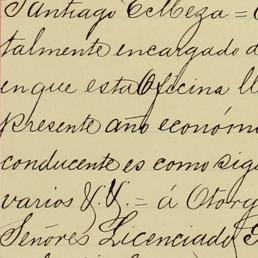 Santiago E. Meza =
talmente encargado d
en que esta Oficina ll
presente año económ
conducente es como sigu
varios V.V. = á Otorg
Señores Licenciado